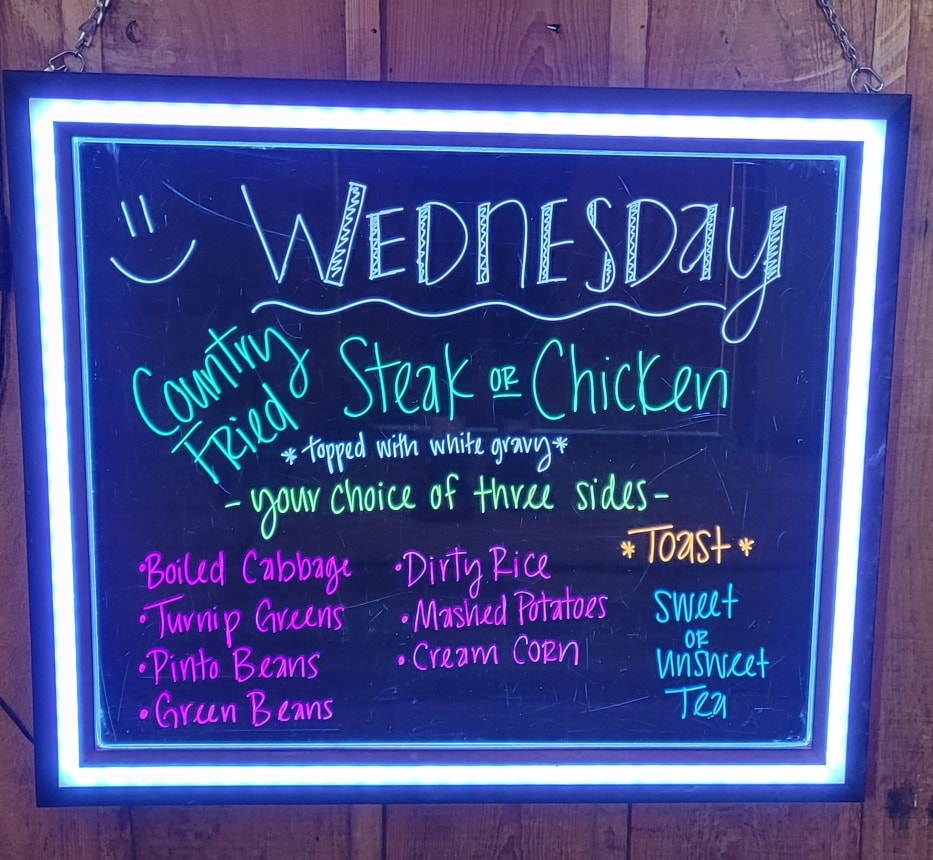 WEDNESDAY
Country Fried Steak OR Chicken
*topped with white gravy*
- your choice of three sides -
• Boiled Cabbage
• Turnip Greens
• Pinto Beans
• Green Beans
• Dirty Rice
• Mashed Potatoes
• Cream Corn
* Toast *
Sweet
OR
Unsweet
Tea